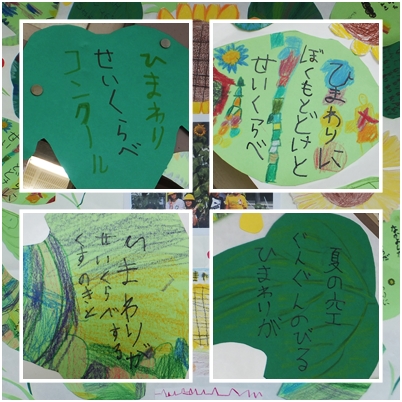 ひまわり
せいくらべ
コンクール
ひまわりに
ぼくもとどけと
せいくらべ
ひまわりが
せいくらべする
くすのきと
夏の空
ぐんぐんのびる
ひまわりが